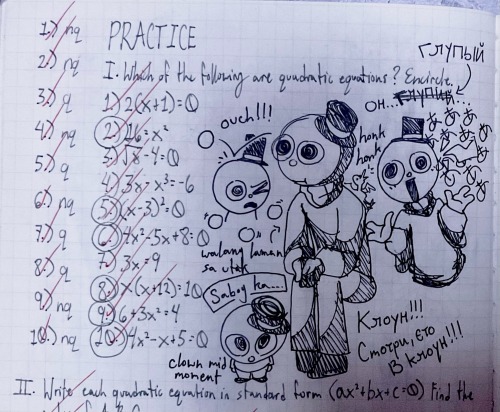 1.) nq
2.) nq
3.) q
4.) nq
5.) q
6.) nq
7.) q
8.) q
9.) nq
10.) nq
PRACTICE
I. Which of the following are quadratic equations? Encircle.
1.) 2(x+1)=0
2.) 16=x²
3.) √x-4=0
4.) 3x-x³=-6
5.) (x-3)²=0
6.) 4x²-5x+8=0
7.) 3x=9
8.) x(x+12)=10
9.) 6+3x²=4
10.) 4x²-x+5=0
ouch!!!
walang laman
sa utak
Sabog ka...
clown mid
moment
ГЛУПЫЙ
OH...
honk
honk
Клоун!!!
Смотри, его
в клоун!!!
II. Write each quadratic equation in standard form (ax²+bx+c=0) Find the